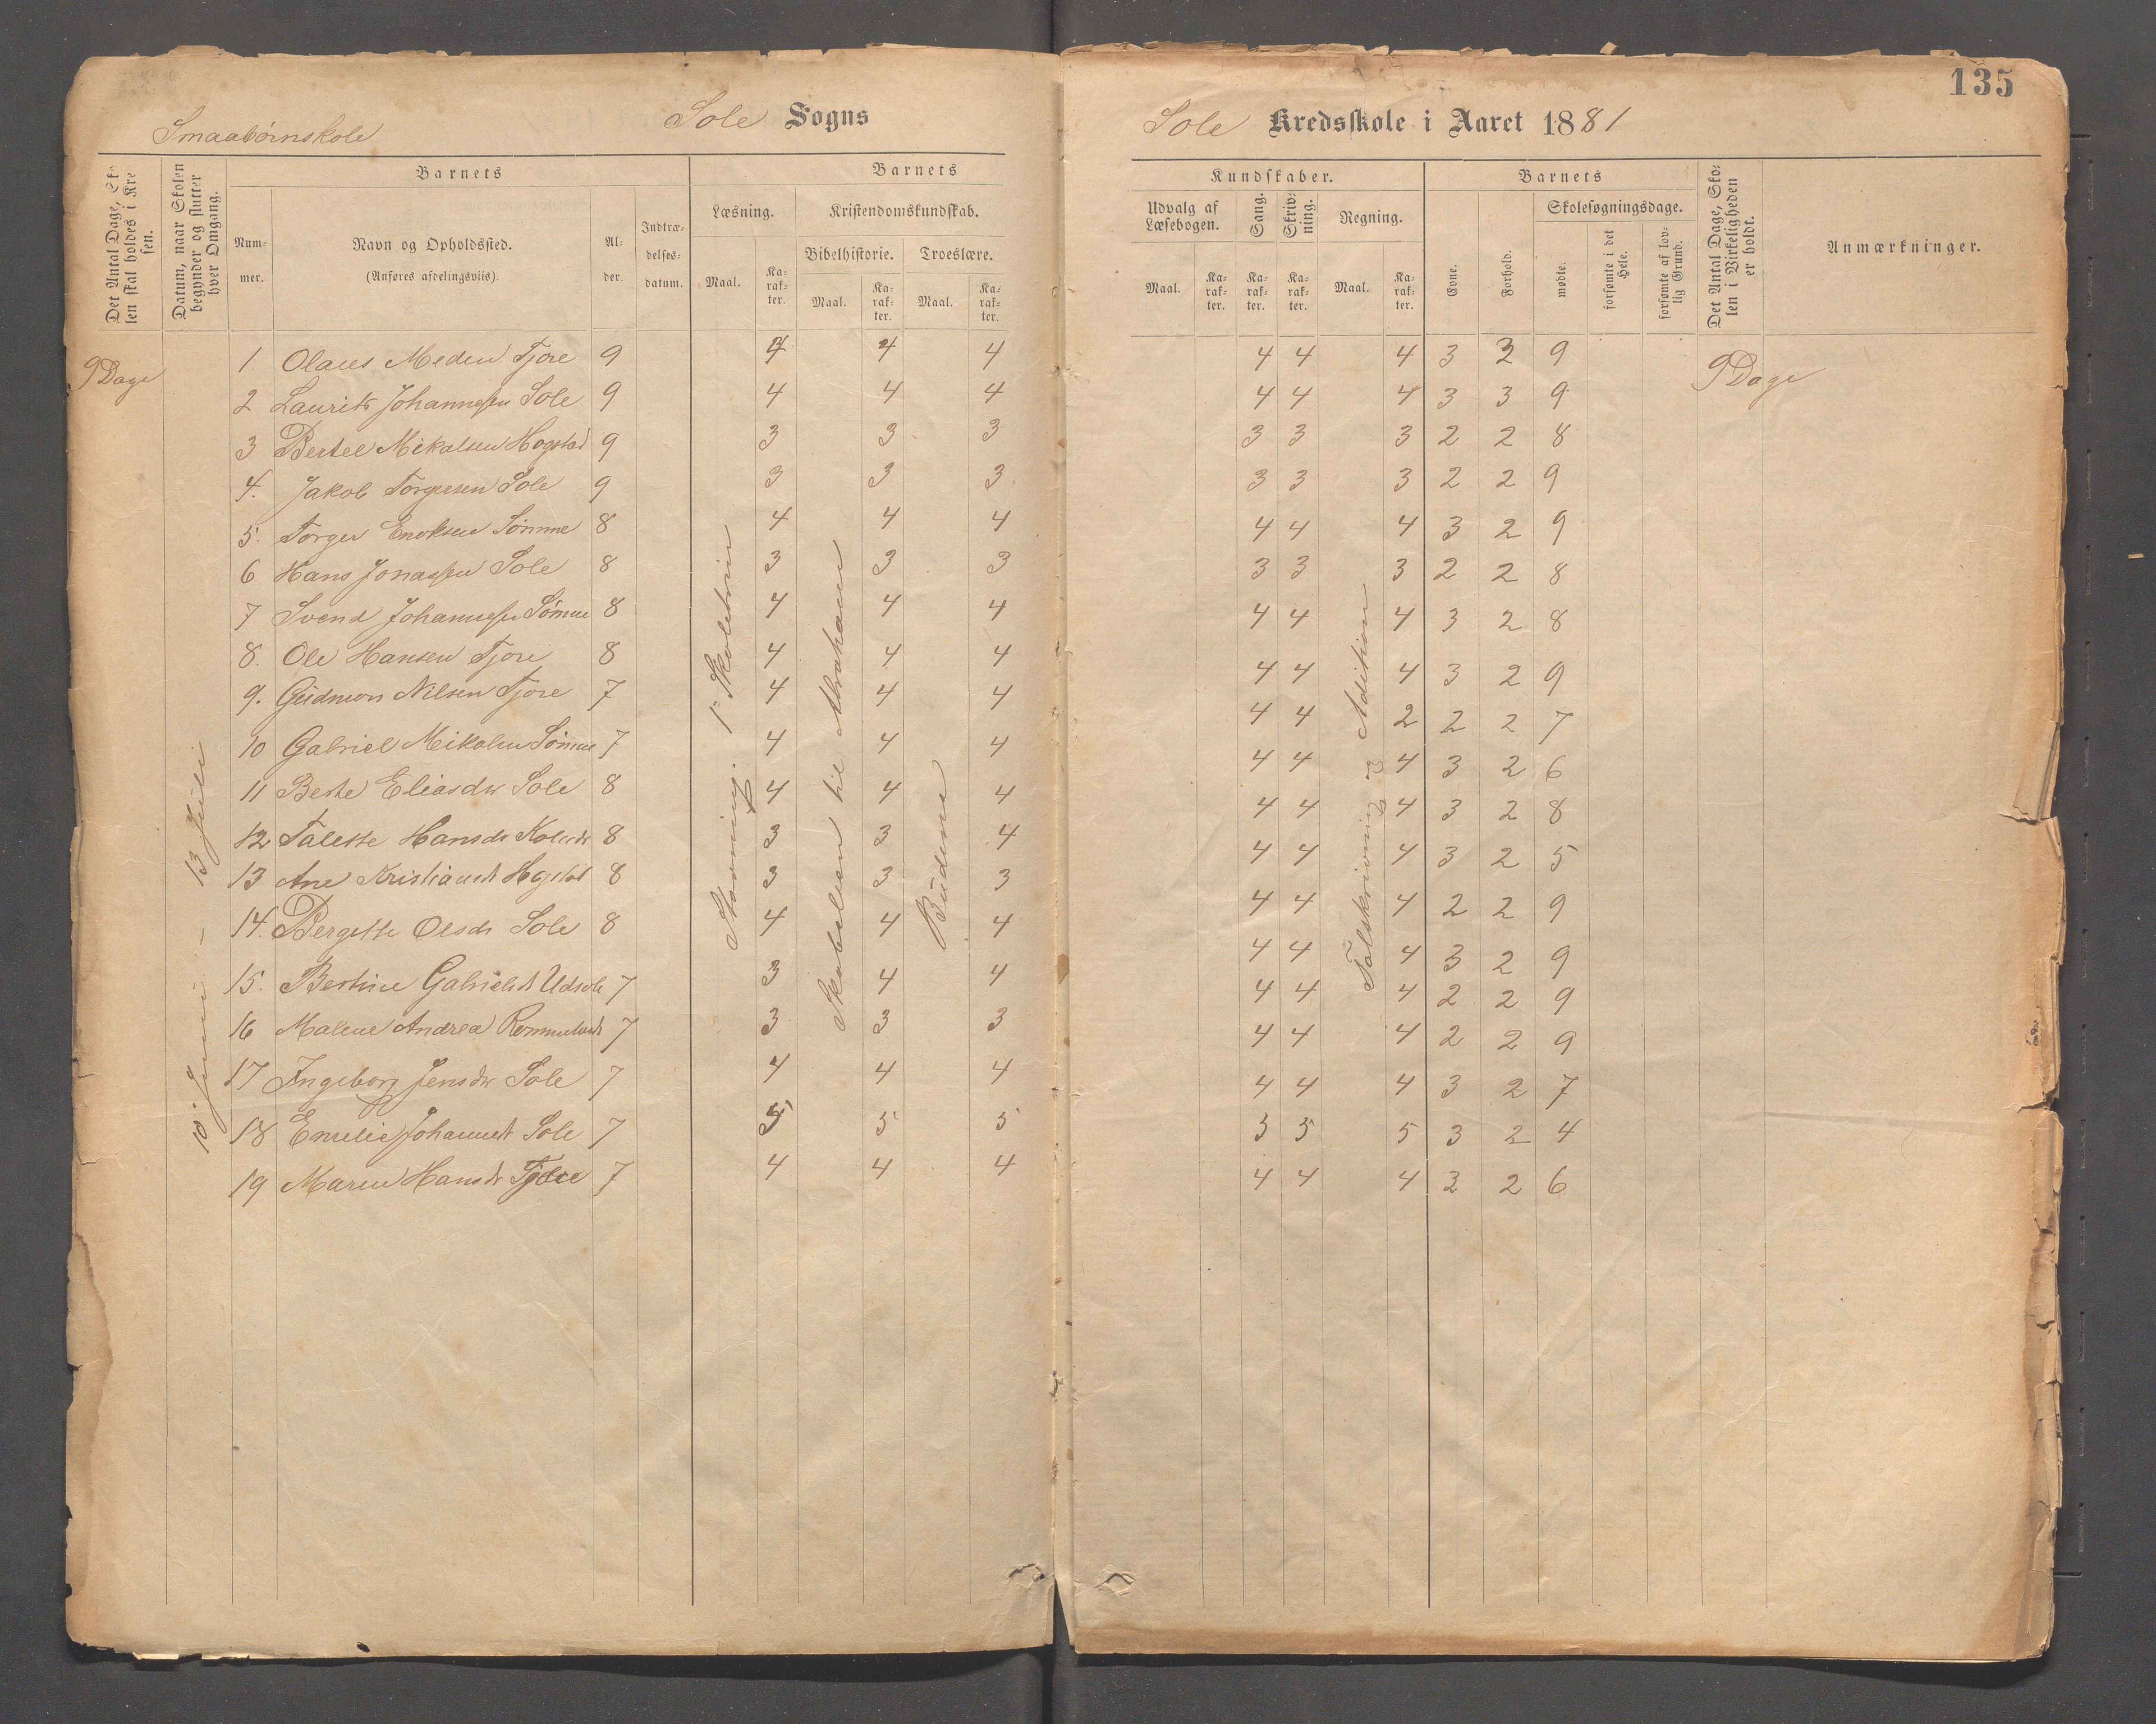 135
Smaabørnskole Sole Sogns Sole Kredsskole i Aaret 1881
Det Antal Dage, Sko-
len skal holdes i Kre
sen.
Datum, naar Skolen
begynder og slutter
hver Omgang.
Barnets
Num-
mer.
Navn og Opholdssted.
(Anføres afdelingsviis).
Al-
der.
Indtræ-
delses-
datum.
Barnets
Læsning.
Maal.
Ka-
rak-
ter.
Kristendomskundskab.
Bibelhistorie.
Maal.
Ka-
rak-
ter.
Troeslære.
Maal.
Ka-
rak-
ter.
Kundskaber.
Udvalg af
Læsebogen.
Maal.
Ka-
rak-
ter.
Sang.
Ka-
rak-
ter.
Skriv-
ning.
Ka-
rak-
ter.
Regning.
Maal.
Ka-
rak-
ter.
Barnets
Evne.
Forhold.
Skolesøgningsdage.
mødte.
forsømte i det
Hele.
forsømte af lov-
lig Grund.
Det Antal Dage, Sko-
len i Virkeligheden
er holdt.
Anmærkninger.
9 Dage
10 Juni - 13 Juli
Stavning. 1ste Skoletrin
Skabelsen til Abraham
Budene
Talskrivning og Adition
9 Dage
1 Olaus Meden Tjore 9 4 4 4 4 4 4 3 3 9
2 Laurits Johannesen Sole 9 4 4 4 4 4 4 3 3 9
3 Bertel Mikalsen Hogstad 9 3 3 3 3 3 3 2 2 8
4. Jakob Torgersen Sole 9 3 3 3 3 3 3 2 2 9
5. Torger Enoksen Sømme 8 4 4 4 4 4 4 3 2 9
6 Hans Jonassen Sole 8 3 3 3 3 3 3 2 2 8
7 Svend Johannesen Sømme 8 4 4 4 4 4 4 3 2 8
8. Ole Hansen Tjore 8 4 4 4 4 4 4 3 2 9
9. Gudmon Nilsen Tjore 7 4 4 4 4 4 2 2 2 7
10 Gabriel Meikalsen Sømme 7 4 4 4 4 4 4 3 2 6
11 Berte Eliasdr Sole 8 4 4 4 4 4 4 3 2 8
12 Talette Hansdr 8 3 3 4 4 4 4 3 2 5
13 Ane Kristiansdt 8 3 3 3 4 4 4 2 2 9
14. Bergitte Olsdr Sole 8 4 4 4 4 4 4 3 2 9
15. Bertine Gabrielsdt Udsole 7 3 4 4 4 4 4 2 2 9
16 Malene Andrea 7 3 3 3 4 4 4 2 2 9
17 Ingeborg Jensdr Sole 7 4 4 4 4 4 4 3 2 7
18 Emelie Johannesdt Sole 7 5 5 5 3 5 5 3 2 4
19 Maren Hansdr Tjore 7 4 4 4 4 4 4 3 2 6